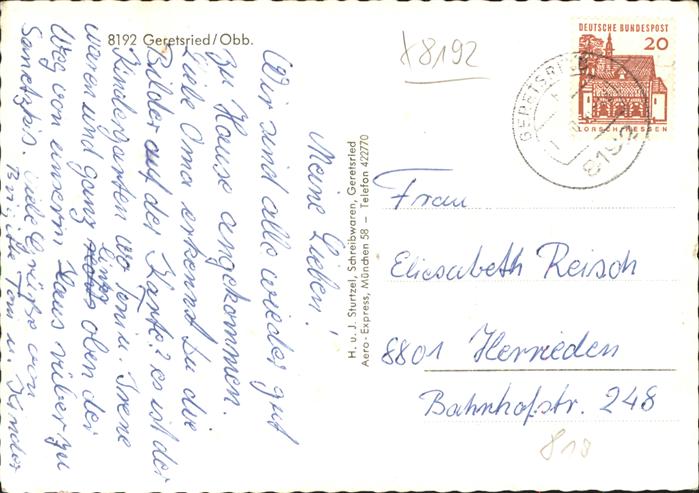 8192 Geretsried/Obb.
Meine Lieben!
Wir sind alle wieder gut
zu Hause angekommen.
Liebe Oma erkennst du die
Bilder auf der Karte? es ist der
Kindergarten wo Toni u. Irene
waren und ganz links oben der
Weg von unserm Haus rüber zu
Sanetzkis. Viele Grüße von
Toni u. Kinder
H. u. J. Sturtzel, Schreibwaren, Geretsried
Aero-Express, München 58 — Telefon 422770
X8192
DEUTSCHE BUNDESPOST
20
LORSCH/HESSEN
GERETSRIED
8192
Frau
Eliesabeth Reisch
8801 Herrieden
Bahnhofstr. 248
818